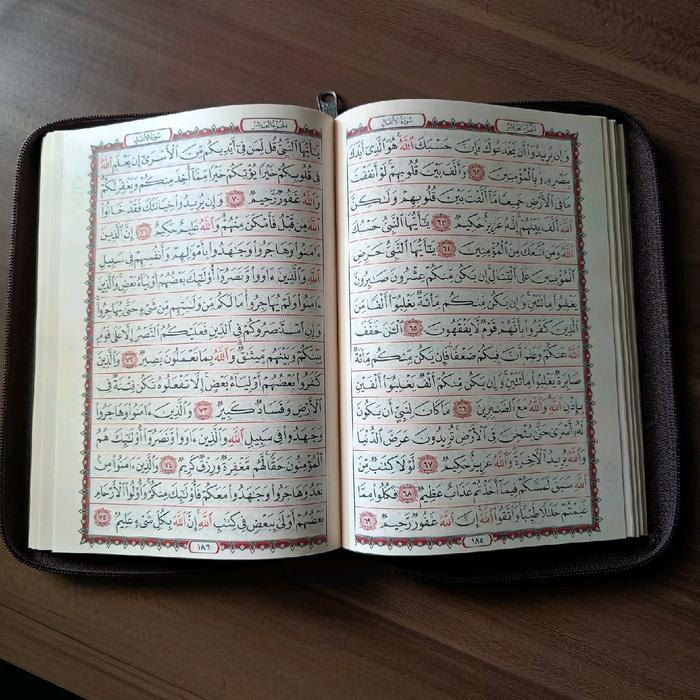 الجزء العاشر
سورة الأنفال
وَإِن يُرِيدُوٓا۟ أَن يَخْدَعُوكَ فَإِنَّ حَسْبَكَ ٱللَّهُ ۚ هُوَ ٱلَّذِىٓ أَيَّدَكَ
بِنَصْرِهِۦ وَبِٱلْمُؤْمِنِينَ ٦٢ وَأَلَّفَ بَيْنَ قُلُوبِهِمْ ۚ لَوْ أَنفَقْتَ
مَا فِى ٱلْأَرْضِ جَمِيعًا مَّآ أَلَّفْتَ بَيْنَ قُلُوبِهِمْ وَلَـٰكِنَّ
ٱللَّهَ أَلَّفَ بَيْنَهُمْ ۚ إِنَّهُۥ عَزِيزٌ حَكِيمٌ ٦٣ يَـٰٓأَيُّهَا ٱلنَّبِىُّ حَسْبُكَ
ٱللَّهُ وَمَنِ ٱتَّبَعَكَ مِنَ ٱلْمُؤْمِنِينَ ٦٤ يَـٰٓأَيُّهَا ٱلنَّبِىُّ حَرِّضِ
ٱلْمُؤْمِنِينَ عَلَى ٱلْقِتَالِ ۚ إِن يَكُن مِّنكُمْ عِشْرُونَ صَـٰبِرُونَ
يَغْلِبُوا۟ مِا۟ئَتَيْنِ ۚ وَإِن يَكُن مِّنكُم مِّا۟ئَةٌ يَغْلِبُوٓا۟ أَلْفًا مِّنَ
ٱلَّذِينَ كَفَرُوا۟ بِأَنَّهُمْ قَوْمٌ لَّا يَفْقَهُونَ ٦٥ ٱلْـَٔـٰنَ خَفَّفَ
ٱللَّهُ عَنكُمْ وَعَلِمَ أَنَّ فِيكُمْ ضَعْفًا ۚ فَإِن يَكُن مِّنكُم مِّا۟ئَةٌ
صَابِرَةٌ يَغْلِبُوا۟ مِا۟ئَتَيْنِ ۚ وَإِن يَكُن مِّنكُمْ أَلْفٌ يَغْلِبُوٓا۟ أَلْفَيْنِ
بِإِذْنِ ٱللَّهِ ۗ وَٱللَّهُ مَعَ ٱلصَّـٰبِرِينَ ٦٦ مَا كَانَ لِنَبِىٍّ أَن يَكُونَ
لَهُۥٓ أَسْرَىٰ حَتَّىٰ يُثْخِنَ فِى ٱلْأَرْضِ ۚ تُرِيدُونَ عَرَضَ ٱلدُّنْيَا
وَٱللَّهُ يُرِيدُ ٱلْـَٔاخِرَةَ ۗ وَٱللَّهُ عَزِيزٌ حَكِيمٌ ٦٧ لَّوْلَا كِتَـٰبٌ مِّنَ
ٱللَّهِ سَبَقَ لَمَسَّكُمْ فِيمَآ أَخَذْتُمْ عَذَابٌ عَظِيمٌ ٦٨ فَكُلُوا۟ مِمَّا
غَنِمْتُمْ حَلَـٰلًا طَيِّبًا ۚ وَٱتَّقُوا۟ ٱللَّهَ ۚ إِنَّ ٱللَّهَ غَفُورٌ رَّحِيمٌ ٦٩
١٨٥
الجزء العاشر
سورة الأنفال
يَـٰٓأَيُّهَا ٱلنَّبِىُّ قُل لِّمَن فِىٓ أَيْدِيكُم مِّنَ ٱلْأَسْرَىٰٓ إِن يَعْلَمِ ٱللَّهُ
فِى قُلُوبِكُمْ خَيْرًا يُؤْتِكُمْ خَيْرًا مِّمَّآ أُخِذَ مِنكُمْ وَيَغْفِرْ لَكُمْ ۗ
وَٱللَّهُ غَفُورٌ رَّحِيمٌ ٧٠ وَإِن يُرِيدُوا۟ خِيَانَتَكَ فَقَدْ خَانُوا۟
ٱللَّهَ مِن قَبْلُ فَأَمْكَنَ مِنْهُمْ ۗ وَٱللَّهُ عَلِيمٌ حَكِيمٌ ٧١ إِنَّ ٱلَّذِينَ
ءَامَنُوا۟ وَهَاجَرُوا۟ وَجَـٰهَدُوا۟ بِأَمْوَٰلِهِمْ وَأَنفُسِهِمْ فِى سَبِيلِ
ٱللَّهِ وَٱلَّذِينَ ءَاوَوا۟ وَّنَصَرُوٓا۟ أُو۟لَـٰٓئِكَ بَعْضُهُمْ أَوْلِيَآءُ بَعْضٍ ۚ وَٱلَّذِينَ
ءَامَنُوا۟ وَلَمْ يُهَاجِرُوا۟ مَا لَكُم مِّن وَلَـٰيَتِهِم مِّن شَىْءٍ حَتَّىٰ يُهَاجِرُوا۟ ۚ
وَإِنِ ٱسْتَنصَرُوكُمْ فِى ٱلدِّينِ فَعَلَيْكُمُ ٱلنَّصْرُ إِلَّا عَلَىٰ قَوْمٍۭ
بَيْنَكُمْ وَبَيْنَهُم مِّيثَـٰقٌ ۗ وَٱللَّهُ بِمَا تَعْمَلُونَ بَصِيرٌ ٧٢ وَٱلَّذِينَ
كَفَرُوا۟ بَعْضُهُمْ أَوْلِيَآءُ بَعْضٍ ۚ إِلَّا تَفْعَلُوهُ تَكُن فِتْنَةٌ فِى
ٱلْأَرْضِ وَفَسَادٌ كَبِيرٌ ٧٣ وَٱلَّذِينَ ءَامَنُوا۟ وَهَاجَرُوا۟
وَجَـٰهَدُوا۟ فِى سَبِيلِ ٱللَّهِ وَٱلَّذِينَ ءَاوَوا۟ وَّنَصَرُوٓا۟ أُو۟لَـٰٓئِكَ هُمُ
ٱلْمُؤْمِنُونَ حَقًّا ۚ لَّهُم مَّغْفِرَةٌ وَرِزْقٌ كَرِيمٌ ٧٤ وَٱلَّذِينَ ءَامَنُوا۟ مِنۢ
بَعْدُ وَهَاجَرُوا۟ وَجَـٰهَدُوا۟ مَعَكُمْ فَأُو۟لَـٰٓئِكَ مِنكُمْ ۚ وَأُو۟لُوا۟ ٱلْأَرْحَامِ
بَعْضُهُمْ أَوْلَىٰ بِبَعْضٍ فِى كِتَـٰبِ ٱللَّهِ ۗ إِنَّ ٱللَّهَ بِكُلِّ شَىْءٍ عَلِيمٌۢ ٧٥
١٨٦